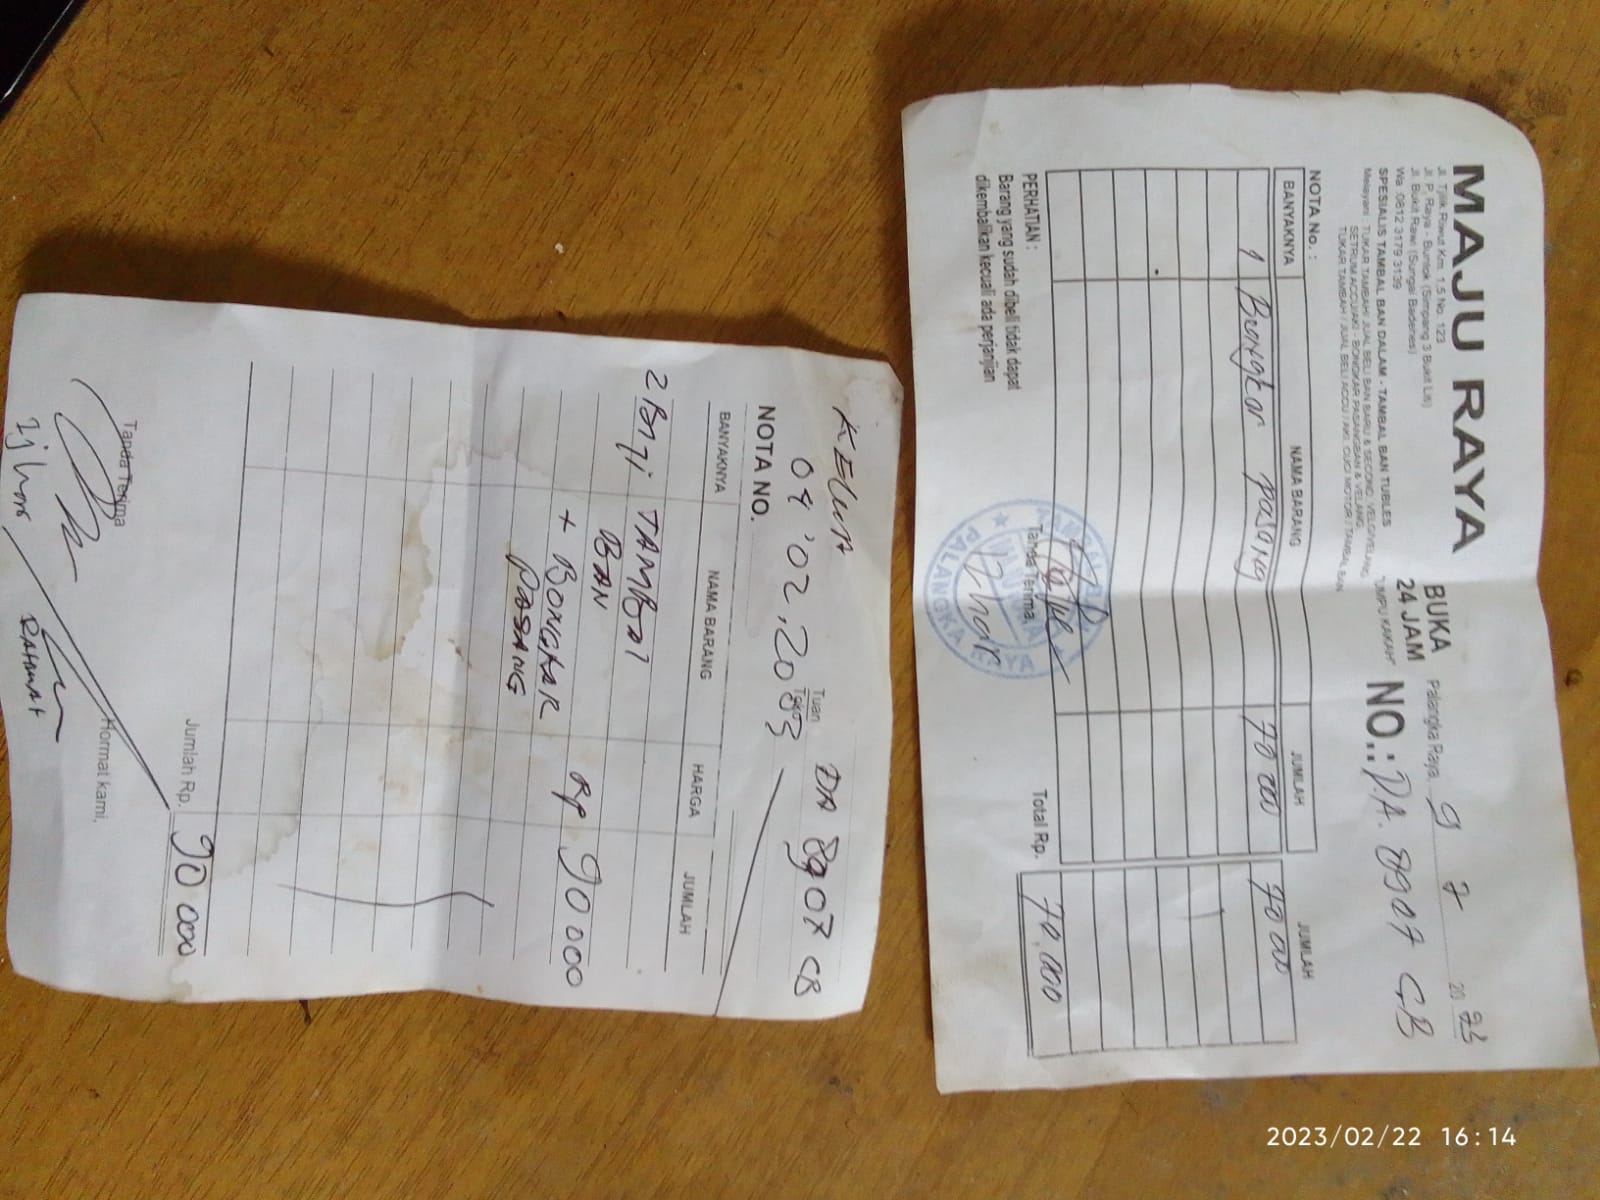 MAJU RAYA
Jl. Tjilik Riwut Km. 1,5 No. 123
Jl. P. Raya - Buntok (Simpang 3 Bukit Liti)
Jl. Bukit Rawi (Sungai Badenes)
Wa :0812 3179 3139
SPESIALIS TAMBAL BAN DALAM - TAMBAL BAN TUBLES
Melayani : TUKAR TAMBAH/ JUAL BELI BAN BARU & SECOND, VELG/VELANG
SETRUM ACCU/AKI - BONGKAR PASANGBAN & VELANG,
TUKAR TAMBAH / JUAL BELI ACCU / AKI, CUCI MOTOR / TAMBAL BAN
BUKA
24 JAM
"UMPU KAKAH"
Palangka Raya, 9 7 2023
NO.: DA. 8907 CB
NOTA No. :
BANYAKNYA NAMA BARANG JUMLAH JUMLAH
1 Bongkar pasang 70 000 70 000
Total Rp. 70.000
PERHATIAN :
Barang yang sudah dibeli tidak dapat
dikembalikan kecuali ada perjanjian
Tanda Terima,
Izhar
TAMBAL BAN
PALANGKA RAYA
2023/02/22 16:14
KELUA
04 '02.2003
Tuan
Toko
DA 8907 CB
NOTA NO.
BANYAKNYA NAMA BARANG HARGA JUMLAH
2 Biji TAMBAl
BAN Rp 90 000
+ BONGKAR
PASANG
Jumlah Rp. 90 000
Tanda Terima
Hormat kami,
Izhar
RAHMAT